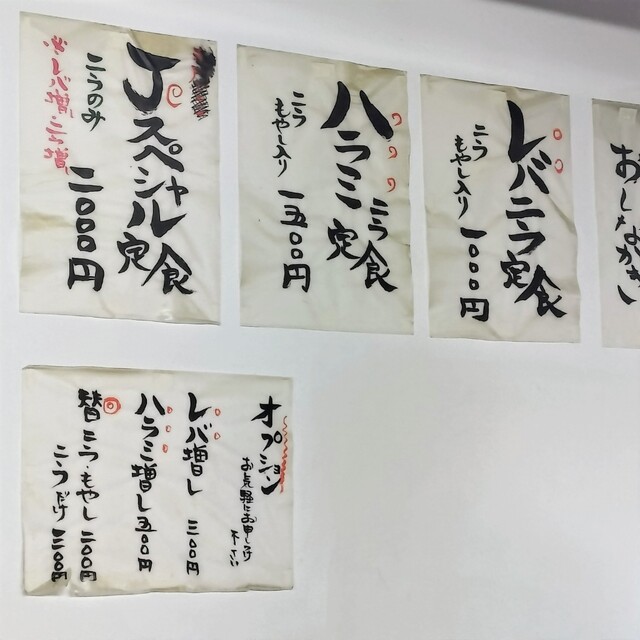 おしながき
レバニラ定食
ニラ
もやし入り
一〇〇〇円
ハラミニラ定食
ニラ
もやし入り
一五〇〇円
Jスペシャル定食
ニラのみ
レバ増ニラ増
二〇〇〇円
オプション
お気軽にお申しつけ
下さい
レバ増し 三〇〇円
ハラミ増し 五〇〇円
替ニラ・もやし 二〇〇円
ニラだけ 三〇〇円